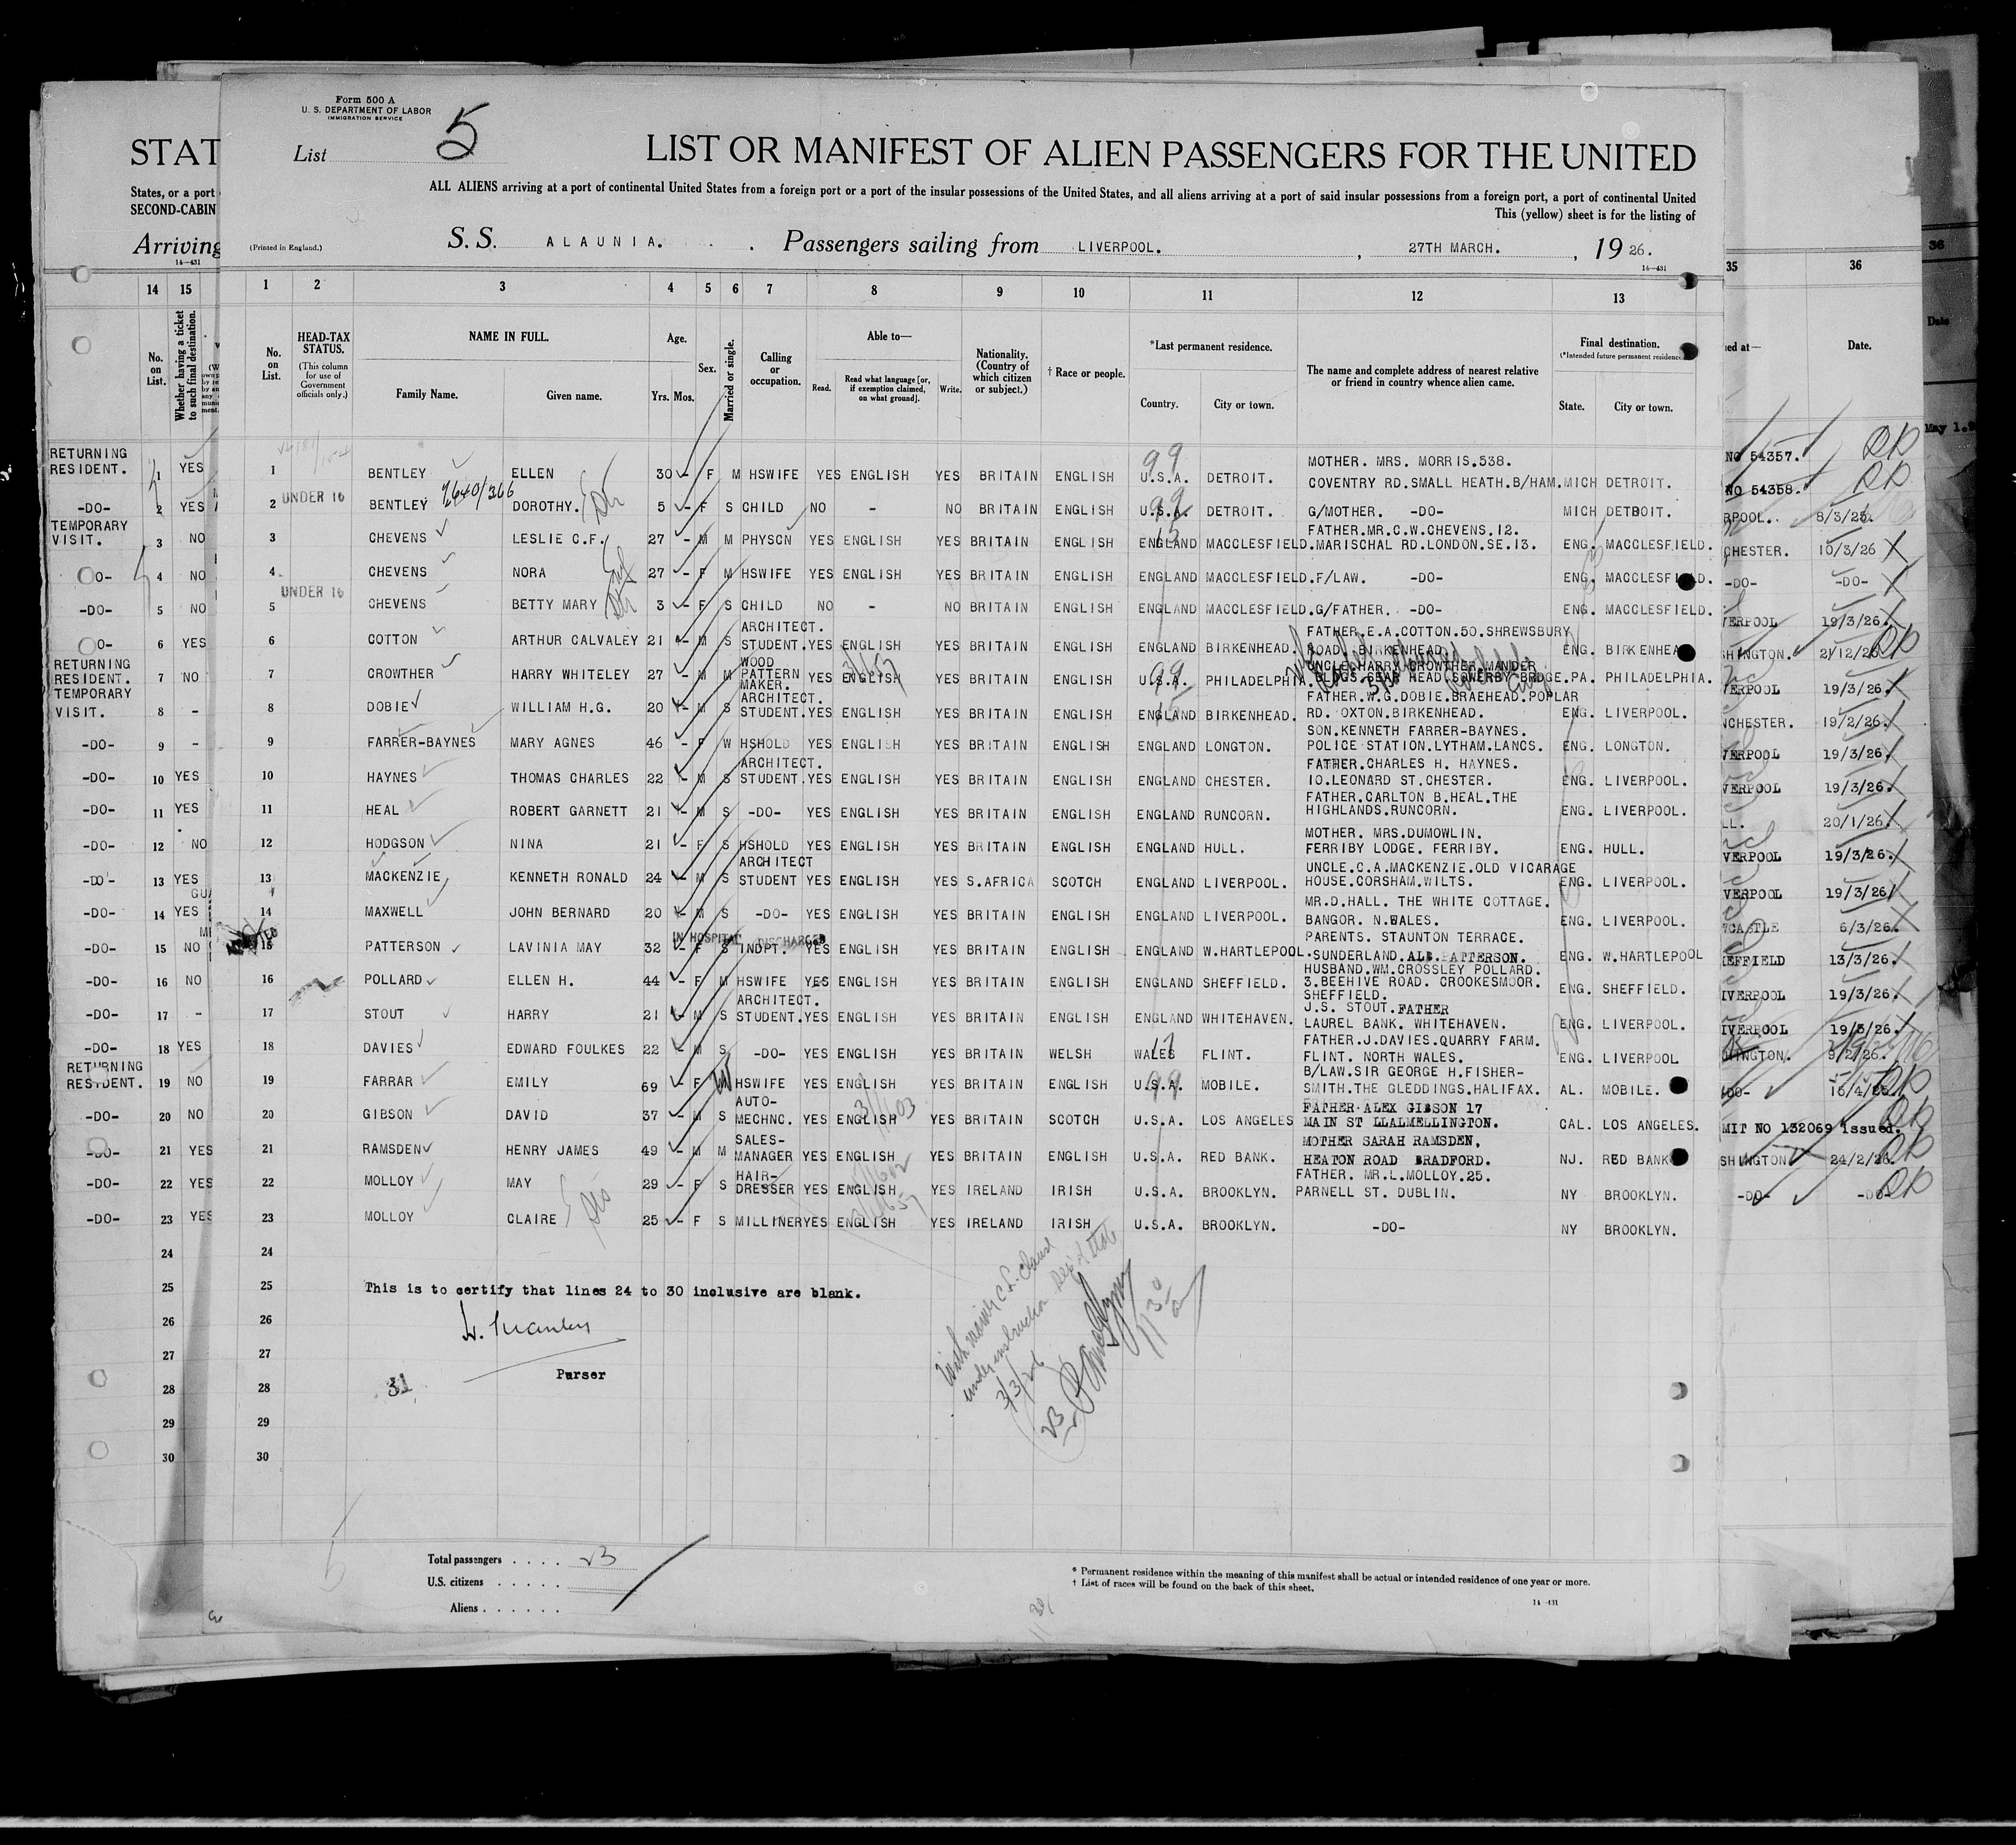 Form 500 A
U. S. DEPARTMENT OF LABOR
IMMIGRATION SERVICE
List 5
LIST OR MANIFEST OF ALIEN PASSENGERS FOR THE UNITED
ALL ALIENS arriving at a port of continental United States from a foreign port or a port of the insular possessions of the United States, and all aliens arriving at a port of said insular possessions from a foreign port, a port of continental United
This (yellow) sheet is for the listing of
(Printed in England.)
S. S. ALAUNIA. Passengers sailing from LIVERPOOL. , 27TH MARCH. , 19 26.
14—431
STAT
States, or a port
SECOND-CABIN
Arriving
14—431
14 15 1 2 3 4 5 6 7 8 9 10 11 12 13 35 36
No. on List.
Whether having a ticket to such final destination.
No. on List.
HEAD-TAX STATUS.
(This column for use of Government officials only.)
NAME IN FULL.
Family Name. Given name.
Age.
Yrs. Mos.
Sex.
Married or single.
Calling or occupation.
Able to—
Read. Read what language [or, if exemption claimed, on what ground]. Write.
Nationality. (Country of which citizen or subject.)
† Race or people.
*Last permanent residence.
Country. City or town.
The name and complete address of nearest relative or friend in country whence alien came.
Final destination.
(*Intended future permanent residence
State. City or town.
ed at— Date.
36
Date
May 1.
RETURNING RESIDENT. 1 YES 1 BENTLEY ELLEN 30 - F M HSWIFE YES ENGLISH YES BRITAIN ENGLISH 99 U.S.A. DETROIT. MOTHER. MRS. MORRIS.538. COVENTRY RD.SMALL HEATH.B/HAM. MICH DETROIT. NO 54357.
-DO- 2 YES 2 UNDER 16 BENTLEY DOROTHY. 5 - F S CHILD NO - NO BRITAIN ENGLISH 99 U.S.A. DETROIT. G/MOTHER. -DO- MICH DETROIT. NO 54358.
TEMPORARY VISIT. 3 NO 3 CHEVENS LESLIE C.F. 27 - M M PHYSCN YES ENGLISH YES BRITAIN ENGLISH 15 ENGLAND MACCLESFIELD. FATHER.MR.C.W.CHEVENS.12. MARISCHAL RD.LONDON.SE.13. ENG. MACCLESFIELD. RPOOL. 8/3/26.
4 NO 4 CHEVENS NORA 27 - F M HSWIFE YES ENGLISH YES BRITAIN ENGLISH ENGLAND MACCLESFIELD. F/LAW. -DO- ENG. MACCLESFIELD. CHESTER. 10/3/26
-DO- 5 NO 5 UNDER 16 CHEVENS BETTY MARY 3 - F S CHILD NO - NO BRITAIN ENGLISH ENGLAND MACCLESFIELD. G/FATHER. -DO- ENG. MACCLESFIELD. -DO- -DO-
6 YES 6 COTTON ARTHUR CALVALEY 21 - M S ARCHITECT. STUDENT. YES ENGLISH YES BRITAIN ENGLISH ENGLAND BIRKENHEAD. FATHER.E.A.COTTON.50.SHREWSBURY ROAD. BIRKENHEAD. ENG. BIRKENHEA VERPOOL 19/3/26.
RETURNING RESIDENT. 7 NO 7 CROWTHER HARRY WHITELEY 27 - M M WOOD PATTERN MAKER. YES ENGLISH YES BRITAIN ENGLISH 99 U.S.A. PHILADELPHIA. UNCLE.HARRY CROWTHER.MANDER BLDGS.SEAR HEAD.SOWERBY BRDGE. PA. PHILADELPHIA. SHINGTON. 21/12/25
TEMPORARY VISIT. 8 - 8 DOBIE WILLIAM H.G. 20 - M S ARCHITECT. STUDENT. YES ENGLISH YES BRITAIN ENGLISH 15 ENGLAND BIRKENHEAD. FATHER.W.G.DOBIE.BRAEHEAD.POPLAR RD. OXTON.BIRKENHEAD. ENG. LIVERPOOL. VERPOOL 19/3/26.
-DO- 9 - 9 FARRER-BAYNES MARY AGNES 46 - F W HSHOLD YES ENGLISH YES BRITAIN ENGLISH ENGLAND LONGTON. SON.KENNETH FARRER-BAYNES. POLICE STATION.LYTHAM.LANCS. ENG. LONGTON. NCHESTER. 19/2/26.
-DO- 10 YES 10 HAYNES THOMAS CHARLES 22 - M S ARCHITECT. STUDENT. YES ENGLISH YES BRITAIN ENGLISH ENGLAND CHESTER. FATHER.CHARLES H. HAYNES. 10.LEONARD ST.CHESTER. ENG. LIVERPOOL. VERPOOL 19/3/26.
-DO- 11 YES 11 HEAL ROBERT GARNETT 21 - M S -DO- YES ENGLISH YES BRITAIN ENGLISH ENGLAND RUNCORN. FATHER.CARLTON B.HEAL.THE HIGHLANDS.RUNCORN. ENG. LIVERPOOL. VERPOOL 19/3/26.
-DO- 12 NO 12 HODGSON NINA 21 - F S HSHOLD YES ENGLISH YES BRITAIN ENGLISH ENGLAND HULL. MOTHER. MRS.DUMOWLIN. FERRIBY LODGE. FERRIBY. ENG. HULL. LL. 20/1/26.
-DO- 13 YES 13 MACKENZIE KENNETH RONALD 24 - M S ARCHITECT STUDENT YES ENGLISH YES S.AFRICA SCOTCH ENGLAND LIVERPOOL. UNCLE.C.A.MACKENZIE.OLD VICARAGE HOUSE.CORSHAM.WILTS. ENG. LIVERPOOL. VERPOOL 19/3/26.
-DO- 14 YES 14 MAXWELL JOHN BERNARD 20 - M S -DO- YES ENGLISH YES BRITAIN ENGLISH ENGLAND LIVERPOOL. MR.D.HALL. THE WHITE COTTAGE. BANGOR. N.WALES. ENG. LIVERPOOL. VERPOOL 19/3/26
-DO- 15 NO 15 PATTERSON LAVINIA MAY 32 - F S IN HOSPITAL DISCHARGED INDPT. YES ENGLISH YES BRITAIN ENGLISH ENGLAND W.HARTLEPOOL. PARENTS. STAUNTON TERRACE. SUNDERLAND. ENG. W.HARTLEPOOL WCASTLE 6/3/26.
-DO- 16 NO 16 POLLARD ELLEN H. 44 - F M HSWIFE YES ENGLISH YES BRITAIN ENGLISH ENGLAND SHEFFIELD. HUSBAND.WM.CROSSLEY POLLARD. 3.BEEHIVE ROAD. CROOKESMOOR. SHEFFIELD. ENG. SHEFFIELD. EFFIELD 13/3/26.
-DO- 17 - 17 STOUT HARRY 21 - M S ARCHITECT. STUDENT. YES ENGLISH YES BRITAIN ENGLISH ENGLAND WHITEHAVEN. J.S. STOUT.FATHER LAUREL BANK. WHITEHAVEN. ENG. LIVERPOOL. IVERPOOL 19/3/26.
-DO- 18 YES 18 DAVIES EDWARD FOULKES 22 - M S -DO- YES ENGLISH YES BRITAIN WELSH 17 WALES FLINT. FATHER.J.DAVIES.QUARRY FARM. FLINT. NORTH WALES. ENG. LIVERPOOL IVERPOOL 19/3/26.
RETURNING RESIDENT. 19 NO 19 FARRAR EMILY 69 - F HSWIFE YES ENGLISH YES BRITAIN ENGLISH 99 U.S.A. MOBILE. B/LAW.SIR GEORGE H.FISHER-SMITH.THE GLEDDINGS.HALIFAX. AL. MOBILE. HINGTON. 9/2/26.
-DO- 20 NO 20 GIBSON DAVID 37 - M S AUTO-MECHNC. YES ENGLISH YES BRITAIN SCOTCH U.S.A. LOS ANGELES FATHER ALEX GIBSON 17 MAIN ST LLALMELLINGTON. CAL. LOS ANGELES. -DO- 15/4/25.
21 YES 21 RAMSDEN HENRY JAMES 49 - M M SALES-MANAGER YES ENGLISH YES BRITAIN ENGLISH U.S.A. RED BANK. MOTHER SARAH RAMSDEN. HEATON ROAD BRADFORD. NJ. RED BANK MIT NO 132069 issued.
-DO- 22 YES 22 MOLLOY MAY 29 - F S HAIR-DRESSER YES ENGLISH YES IRELAND IRISH U.S.A. BROOKLYN. FATHER. MR.L.MOLLOY.25. PARNELL ST. DUBLIN. NY BROOKLYN. SHINGTON 24/2/26.
-DO- 23 YES 23 MOLLOY CLAIRE 25 - F S MILLINER YES ENGLISH YES IRELAND IRISH U.S.A. BROOKLYN. -DO- NY BROOKLYN. -DO- -DO-
24 24
25 25 This is to certify that lines 24 to 30 inclusive are blank.
26 26
27 27
Purser
28 28 31
29 29
30 30
Total passengers . . . . 23
U.S. citizens . . . . .
Aliens . . . . . .
* Permanent residence within the meaning of this manifest shall be actual or intended residence of one year or more.
† List of races will be found on the back of this sheet.
14—431